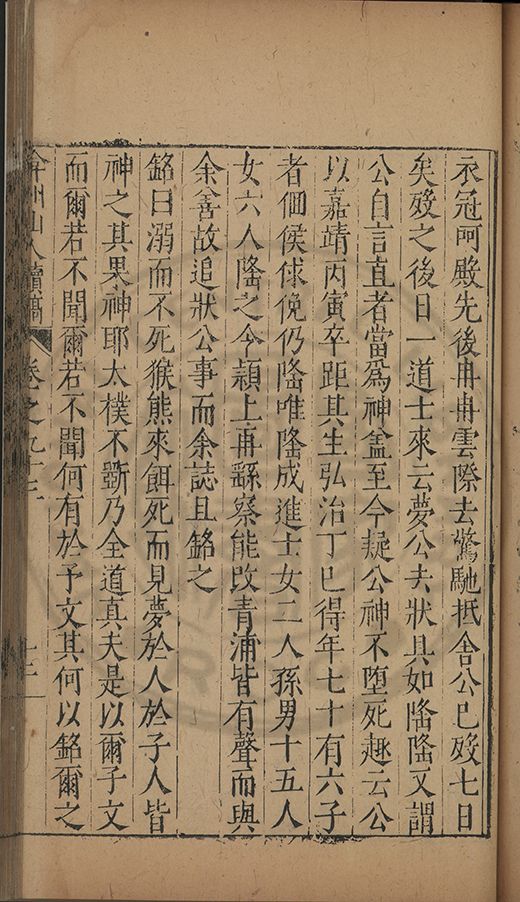 衣冠呵殿先後冉冉雲際去驚馳抵舍公已歿七日
矣歿之後日一道士來云夢公去狀具如隆隆又謂
公自言直者當為神盖至今疑公神不墮死趣云公
以嘉靖丙寅卒距其生弘治丁巳得年七十有六子
者佃侯俅俛仍隆唯隆成進士女二人孫男十五人
女六人隆之令潁上再繇察能改青浦皆有聲而與
余善故追狀公事而余誌且銘之
銘曰溺而不死猴熊來餌死而見夢於人於子人皆
神之其果神耶太樸不斲乃全道真夫是以爾子文
而爾若不聞爾若不聞何有於予文其何以銘爾之
弇州山人續稿 卷之九十